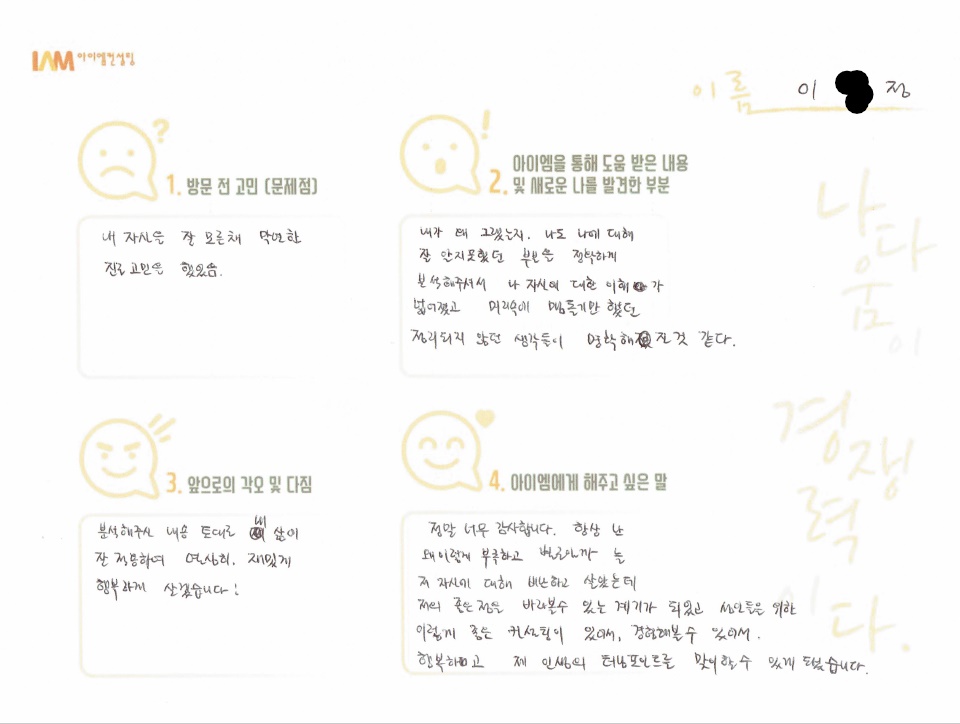 IAM 아이엠컨설팅
이름 이 정
1. 방문 전 고민 (문제점)
내 자신을 잘 모른채 막연한
진로고민을 했었음.
2. 아이엠을 통해 도움 받은 내용
및 새로운 나를 발견한 부분
내가 왜 그랬는지, 나도 나에 대해
잘 알지못했던 부분을 정확하게
분석해주셔서 나 자신에 대한 이해가
넓어졌고 머릿속에 맴돌기만 했던
정리되지 않던 생각들이 명확해진것 같다.
3. 앞으로의 각오 및 다짐
분석해주신 내용 토대로 내 삶이
잘 적용하여 열심히, 재밌게
행복하게 살겠습니다!
4. 아이엠에게 해주고 싶은 말
정말 너무 감사합니다. 항상 난
왜이렇게 부족하고 별로일까 늘
저 자신에 대해 비난하고 살았는데
저의 좋은점을 바라볼수 있는 계기가 되었고 성인들을 위한
이렇게 좋은 컨설팅이 있어서, 경험해볼수 있어서.
행복하고 제 인생의 터닝포인트를 맞이할수 있게 됐습니다.
나다움이
경쟁력이다.